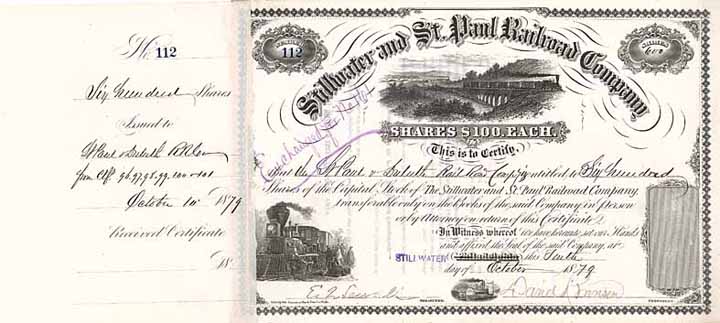 No. 112
Six Hundred Shares
Issued to
St Paul & Duluth RR Co
from Ctfs 96.97.98.99. 100 & 101
October 10 1879
Received Certificate
18
112
600
Stillwater and St. Paul Railroad Company
SHARES $100. EACH.
This is to Certify,
that the St Paul & Duluth Rail Road Company is entitled to Six Hundred
Shares of the Capital Stock of The Stillwater and St. Paul Railroad Company,
transferable only on the Books of the said Company in person
or by Attorney on return of this Certificate.
In Witness whereof we have hereunto set our Hands
and affixed the Seal of the said Company, at
STILLWATER Philadelphia this Tenth
day of October 1879